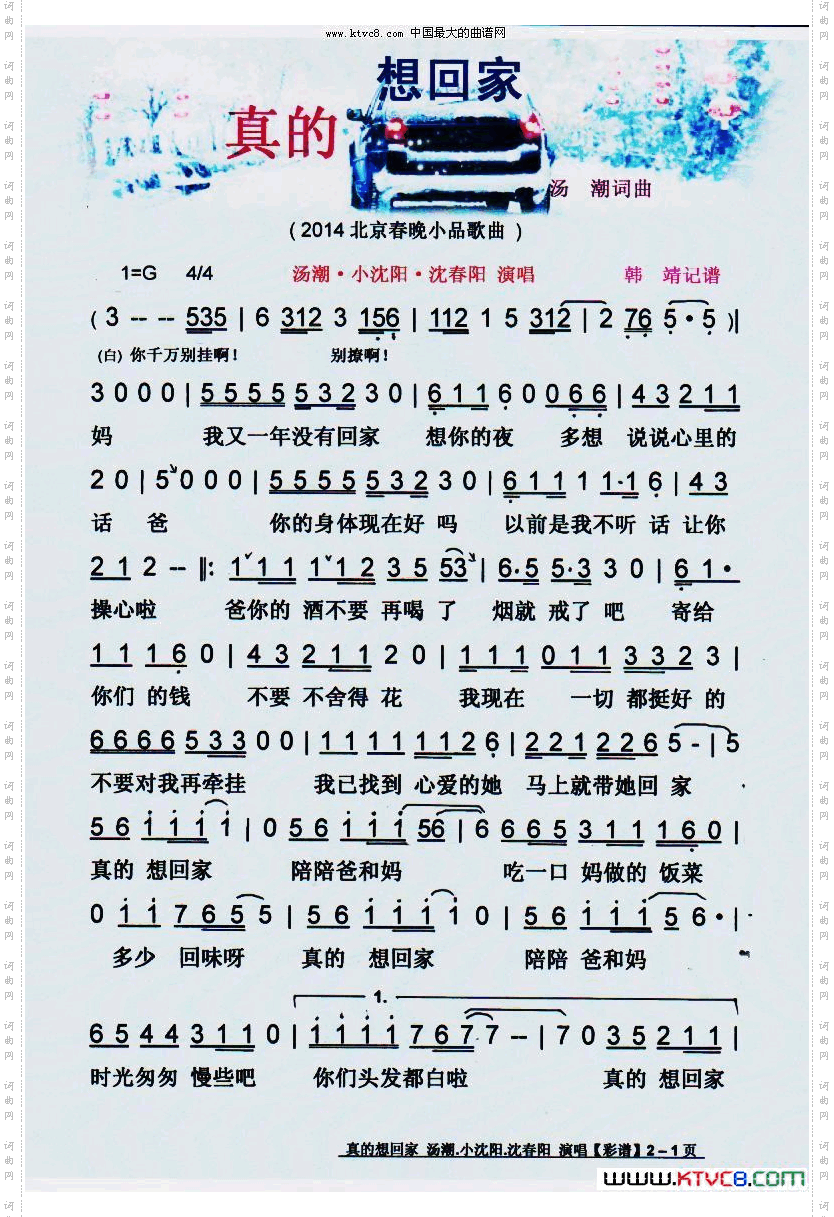 www.ktvc8.com 中国最大的曲谱网
想回家
真的
汤 潮词曲
(2014北京春晚小品歌曲)
1=G 4/4 汤潮·小沈阳·沈春阳 演唱 韩 靖记谱
( 3 -- -- 535 | 6 312 3 156 | 112 1 5 312 | 2 76 5 · 5 )||
(白)你千万别挂啊! 别撩啊!
3 0 0 0 | 5 5 5 5 5 3 2 3 0 | 6 1 1 6 0 0 6 6 | 4 3 2 1 1
妈 我又一年没有回家 想你的夜 多想 说说心里的
2 0 | 5 0 0 0 | 5 5 5 5 5 3 2 3 0 | 6 1 1 1 1 1·1 6 | 4 3
话 爸 你的身体现在好 吗 以前是我不听 话 让你
2 1 2 -- ||: 1 1 1 1 1 2 3 5 53 | 6·5 5·3 3 0 | 6 1 ·
操心啦 爸你的 酒不要 再喝 了 烟就 戒了 吧 寄给
1 1 1 6 0 | 4 3 2 1 1 2 0 | 1 1 1 0 1 1 3 3 2 3 |
你们 的钱 不要 不舍得 花 我现在 一切 都挺好 的
6 6 6 6 5 3 3 0 0 | 1 1 1 1 1 1 2 6 | 2 2 1 2 2 6 5 - | 5
不要对我再牵挂 我已找到 心爱的她 马上就带她回 家
5 6 1 1 1 1 | 0 5 6 1 1 1 56 | 6 6 6 6 5 3 1 1 1 6 0 |
真的 想回家 陪陪爸和妈 吃一口 妈做的 饭菜
0 1 1 7 6 5 5 | 5 6 1 1 1 1 0 | 5 6 1 1 1 5 6 · |
多少 回味呀 真的 想回家 陪陪 爸和妈
1.
6 5 4 4 3 1 1 0 | 1 1 1 1 7 6 7 7 -- | 7 0 3 5 2 1 1 |
时光匆匆 慢些吧 你们头发都白啦 真的 想回家
真的想回家 汤潮.小沈阳.沈春阳 演唱【彩谱】2-1页
www.KTVC8.com